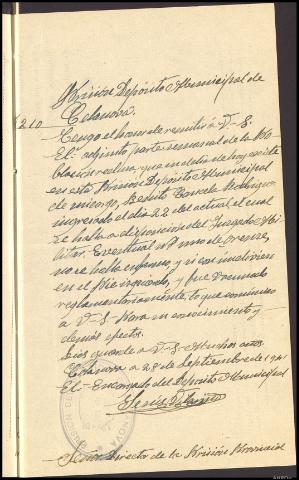 Prisión Depósito Municipal de
Celanova.
210
Tengo el honor de remitir a V-S-
El adjunto parte semanal de la Po
blacion reclusa, que en el dia de hoy existe
en esta Prisión Depósito Municipal
de mi cargo, Benito
ingresado el dia 22 del actual el cual
se halla a disposición del Juzgado Mi-
litar Eventual nº uno de Orense,
no se halla enfermo, y si con
en el Pie izquierdo, y fue vacunado
reglamentariamente, lo que comunico
a V-S- Para su conocimiento y
demás efectos.
Dios guarde a V-S- Muchos años
Celanova a 28 de Septiembre de 194
El- Encargado del Depósito Municipal
Señor Director de la Prisión Provincial